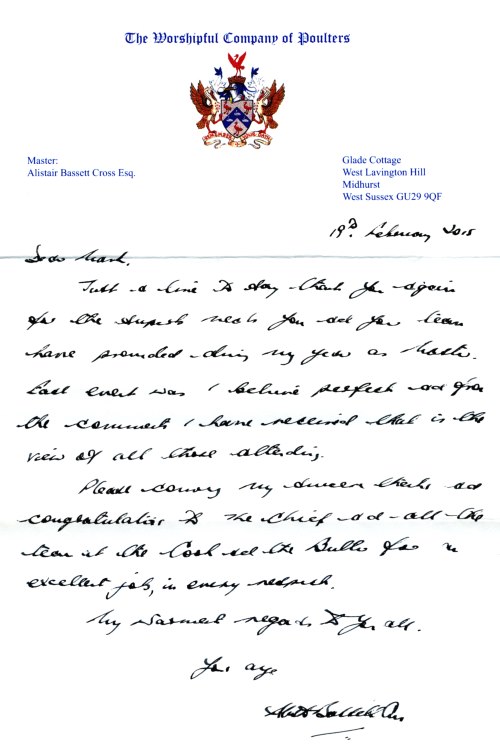 The Worshipful Company of Poulters
Master:
Alistair Bassett Cross Esq.
Glade Cottage
West Lavington Hill
Midhurst
West Sussex GU29 9QF
19th February 2015
Dear Mark.
Just a line to say thank you again
for the superb meals you and your team
have provided during my year as Master.
Each event was I believe perfect and from
the comments I have received that is the
view of all those attending.
Please convey my sincere thanks and
congratulations to the Chief and all the
team at the Cook and the Butler for an
excellent job, in every respect.
My warmest regards to you all.
Yours aye